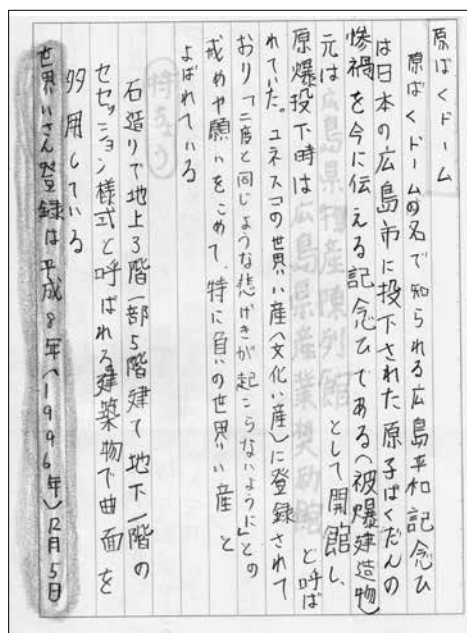 原ばくドーム
原ばくドームの名で知られる広島平和記念ひ
は日本の広島市に投下された原子ばくだんの
惨禍を今に伝える記念ひである(被爆建造物)
元は広島県物産陳列館として開館し、
原爆投下時は広島県産業奨励館と呼ば
れていた。ユネスコの世界い産(文化い産)に登録されて
おり「二度と同じような悲げきが起こらないように」との
戒めや願いをこめて、特に負いの世界い産と
よばれている
特ちょう
石造りで地上3階一部5階建て地下一階の
セセッション様式と呼ばれる建築物で曲面を
多用している
世界いさん登録は平成8年(1996年)12月5日